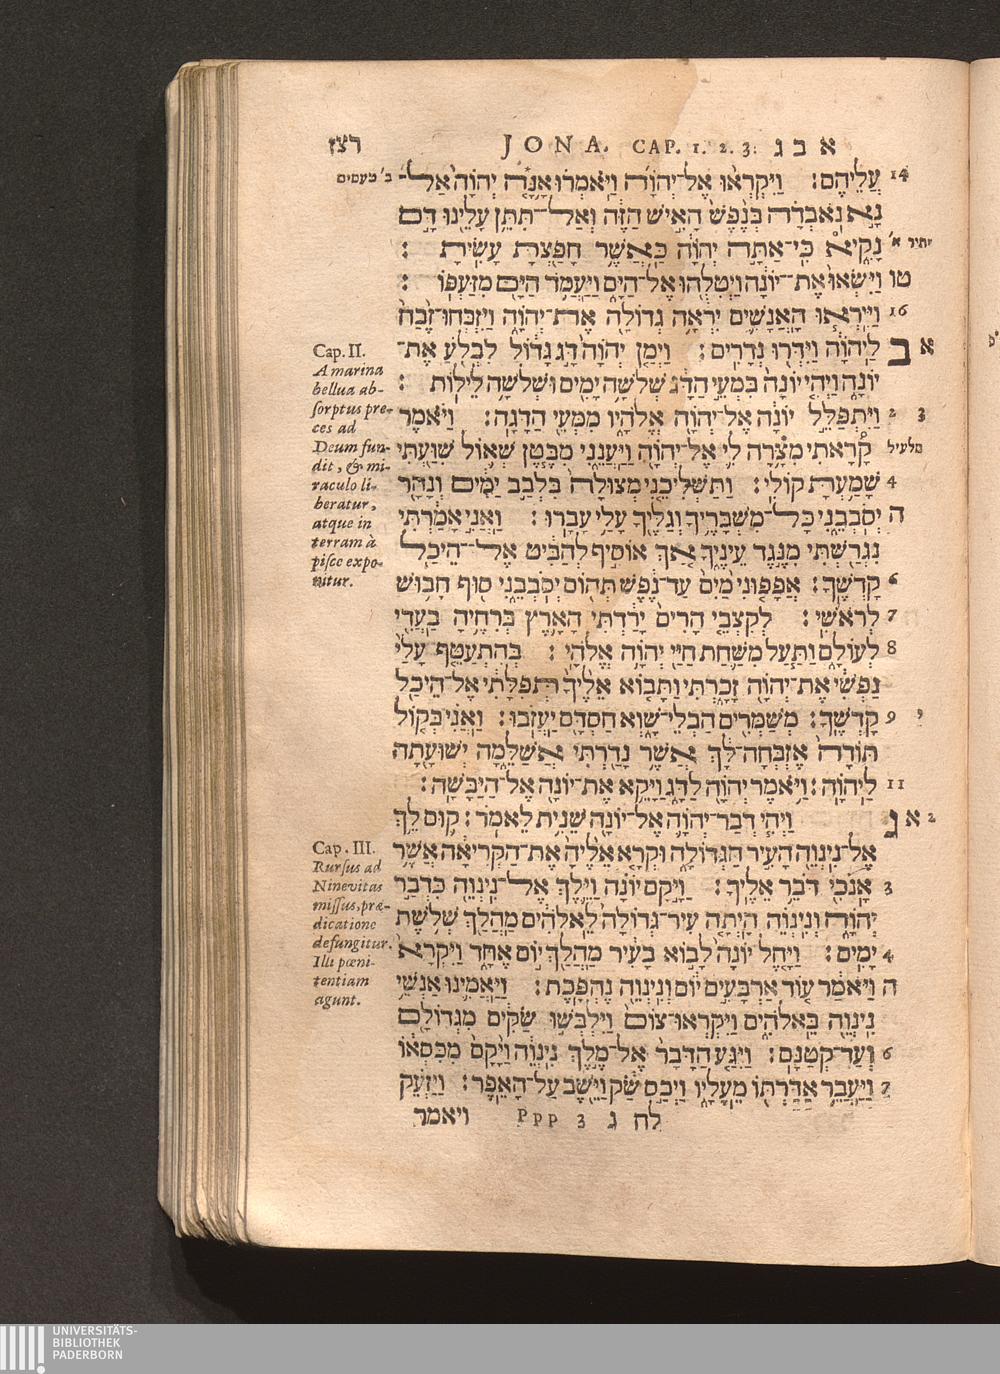 רצז JONA. CAP. 1. 2. 3. א ב ג
14 עֲלֵיהֶם׃ וַיִּקְרְא֨וּ אֶל־יְהוָ֜ה וַיֹּאמְר֗וּ אָנָּ֤ה יְהוָה֙ אַל־ ב' טעמים
נָ֣א נֹאבְדָ֗ה בְּנֶ֙פֶשׁ֙ הָאִ֣ישׁ הַזֶּ֔ה וְאַל־תִּתֵּ֥ן עָלֵ֖ינוּ דָּ֣ם
נָקִ֑יא כִּֽי־אַתָּ֣ה יְהוָ֔ה כַּאֲשֶׁ֥ר חָפַ֖צְתָּ עָשִֽׂיתָ׃ יתיר א'
טו וַיִּשְׂאוּ֙ אֶת־יוֹנָ֔ה וַיְטִלֻ֖הוּ אֶל־הַיָּ֑ם וַיַּעֲמֹ֥ד הַיָּ֖ם מִזַּעְפּֽוֹ׃
16 וַיִּֽירְא֧וּ הָאֲנָשִׁ֛ים יִרְאָ֥ה גְדוֹלָ֖ה אֶת־יְהוָ֑ה וַיִּֽזְבְּחוּ־זֶ֙בַח֙
א ב לַֽיהוָ֔ה וַֽיִּדְּר֖וּ נְדָרִֽים׃ וַיְמַ֤ן יְהוָה֙ דָּ֣ג גָּד֔וֹל לִבְלֹ֖עַ אֶת־
יוֹנָ֑ה וַיְהִ֤י יוֹנָה֙ בִּמְעֵ֣י הַדָּ֔ג שְׁלֹשָׁ֥ה יָמִ֖ים וּשְׁלֹשָׁ֥ה לֵילֽוֹת׃
2 3 וַיִּתְפַּלֵּ֣ל יוֹנָ֔ה אֶל־יְהוָ֖ה אֱלֹהָ֑יו מִמְּעֵ֖י הַדָּגָֽה׃ וַיֹּ֗אמֶר
קָ֠רָאתִי מִצָּ֥רָה לִ֛י אֶל־יְהוָ֖ה וַֽיַּעֲנֵ֑נִי מִבֶּ֧טֶן שְׁא֛וֹל שִׁוַּ֖עְתִּי מלעיל
4 שָׁמַ֥עְתָּ קוֹלִֽי׃ וַתַּשְׁלִיכֵ֤נִי מְצוּלָה֙ בִּלְבַ֣ב יַמִּ֔ים וְנָהָ֖ר
ה יְסֹבְבֵ֑נִי כָּל־מִשְׁבָּרֶ֥יךָ וְגַלֶּ֖יךָ עָלַ֥י עָבָֽרוּ׃ וַאֲנִ֣י אָמַ֔רְתִּי
נִגְרַ֖שְׁתִּי מִנֶּ֣גֶד עֵינֶ֑יךָ אַ֚ךְ אוֹסִ֣יף לְהַבִּ֔יט אֶל־הֵיכַ֖ל
6 קָדְשֶֽׁךָ׃ אֲפָפ֤וּנִי מַ֙יִם֙ עַד־נֶ֔פֶשׁ תְּה֖וֹם יְסֹבְבֵ֑נִי ס֖וּף חָב֥וּשׁ
7 לְרֹאשִֽׁי׃ לְקִצְבֵ֤י הָרִים֙ יָרַ֔דְתִּי הָאָ֛רֶץ בְּרִחֶ֥יהָ בַעֲדִ֖י
8 לְעוֹלָ֑ם וַתַּ֧עַל מִשַּׁ֛חַת חַיַּ֖י יְהוָ֥ה אֱלֹהָֽי׃ בְּהִתְעַטֵּ֤ף עָלַי֙
נַפְשִׁ֔י אֶת־יְהוָ֖ה זָכָ֑רְתִּי וַתָּב֤וֹא אֵלֶ֙יךָ֙ תְּפִלָּתִ֔י אֶל־הֵיכַ֖ל
9 י קָדְשֶֽׁךָ׃ מְשַׁמְּרִ֖ים הַבְלֵי־שָׁ֑וְא חַסְדָּ֖ם יַעֲזֹֽבוּ׃ וַאֲנִ֗י בְּק֤וֹל
תּוֹדָה֙ אֶזְבְּחָה־לָּ֔ךְ אֲשֶׁ֥ר נָדַ֖רְתִּי אֲשַׁלֵּ֑מָה יְשׁוּעָ֖תָה
11 לַיהוָֽה׃ וַיֹּ֥אמֶר יְהוָ֖ה לַדָּ֑ג וַיָּקֵ֥א אֶת־יוֹנָ֖ה אֶל־הַיַּבָּשָֽׁה׃
2 א ג וַיְהִ֧י דְבַר־יְהוָ֛ה אֶל־יוֹנָ֖ה שֵׁנִ֥ית לֵאמֹֽר׃ ק֛וּם לֵ֥ךְ
אֶל־נִֽינְוֵ֖ה הָעִ֣יר הַגְּדוֹלָ֑ה וּקְרָ֤א אֵלֶ֙יהָ֙ אֶת־הַקְּרִיאָ֔ה אֲשֶׁ֥ר
3 אָנֹכִ֖י דֹּבֵ֥ר אֵלֶֽיךָ׃ וַיָּ֣קָם יוֹנָ֗ה וַיֵּ֛לֶךְ אֶל־נִֽינְוֵ֖ה כִּדְבַ֣ר
יְהוָ֑ה וְנִֽינְוֵ֗ה הָיְתָ֤ה עִיר־גְּדוֹלָה֙ לֵֽאלֹהִ֔ים מַהֲלַ֖ךְ שְׁלֹ֥שֶׁת
4 יָמִֽים׃ וַיָּ֤חֶל יוֹנָה֙ לָב֣וֹא בָעִ֔יר מַהֲלַ֖ךְ י֣וֹם אֶחָ֑ד וַיִּקְרָא֙
ה וַיֹּאמַ֔ר ע֚וֹד אַרְבָּעִ֣ים י֔וֹם וְנִֽינְוֵ֖ה נֶהְפָּֽכֶת׃ וַֽיַּאֲמִ֛ינוּ אַנְשֵׁ֥י
נִֽינְוֵ֖ה בֵּֽאלֹהִ֑ים וַיִּקְרְאוּ־צוֹם֙ וַיִּלְבְּשׁ֣וּ שַׂקִּ֔ים מִגְּדוֹלָ֖ם
6 וְעַד־קְטַנָּֽם׃ וַיִּגַּ֤ע הַדָּבָר֙ אֶל־מֶ֣לֶךְ נִֽינְוֵ֔ה וַיָּ֙קָם֙ מִכִּסְא֔וֹ
7 וַיַּעֲבֵ֥ר אַדַּרְתּ֖וֹ מֵֽעָלָ֑יו וַיְכַ֣ס שַׂ֔ק וַיֵּ֖שֶׁב עַל־הָאֵֽפֶר׃ וַיַּזְעֵ֗ק
לח ג Ppp 3 ויאמר
Cap. II.
A marina
bellua ab-
sorptus pre-
ces ad
Deum fun-
dit, & mi-
raculo li-
beratur,
atque in
terram à
pisce expo-
nitur.
Cap. III.
Rursus ad
Ninevitas
missus, præ-
dicatione
defungitur.
Illi pœni-
tentiam
agunt.
UNIVERSITÄTS-
BIBLIOTHEK
PADERBORN